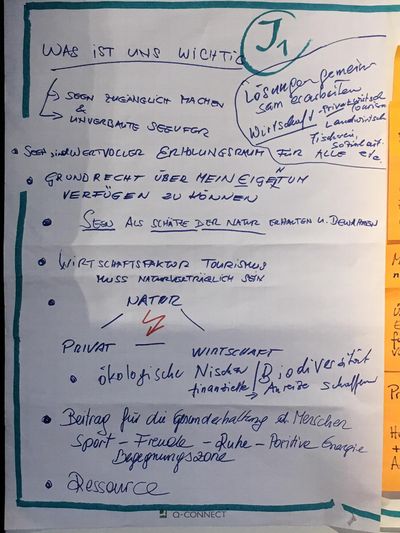 J1
WAS IST UNS WICHTIG
Lösungen gemein
sam erarbeiten
Wirtschaft - Privatwirtsch
Tourism
Landwirtsch
Fischerei,
Sozialarb.
→ SEEN ZUGÄNGLICH MACHEN
&
→ UNVERBAUTE SEEUFER
• SEEN sind WERTVOLLER ERHOLUNGSRAUM FÜR ALLE etc.
• GRUNDRECHT ÜBER MEIN EIGENTUM
VERFÜGEN ZU KÖNNEN
• SEEN ALS SCHÄTZE DER NATUR ERHALTEN U. BEWAHREN
• WIRTSCHAFTSFAKTOR TOURISMUS
MUSS NATURVERTRÄGLICH SEIN
• NATUR
PRIVAT — WIRTSCHAFT
• ökologische Nischen / Biodiversität
finanzielle → Anreize schaffen
• Beitrag für die Gesunderhaltung d. Menschen
Sport - Freude - Ruhe - Positive Energie
Begegnungszone
• Ressource
Q-CONNECT